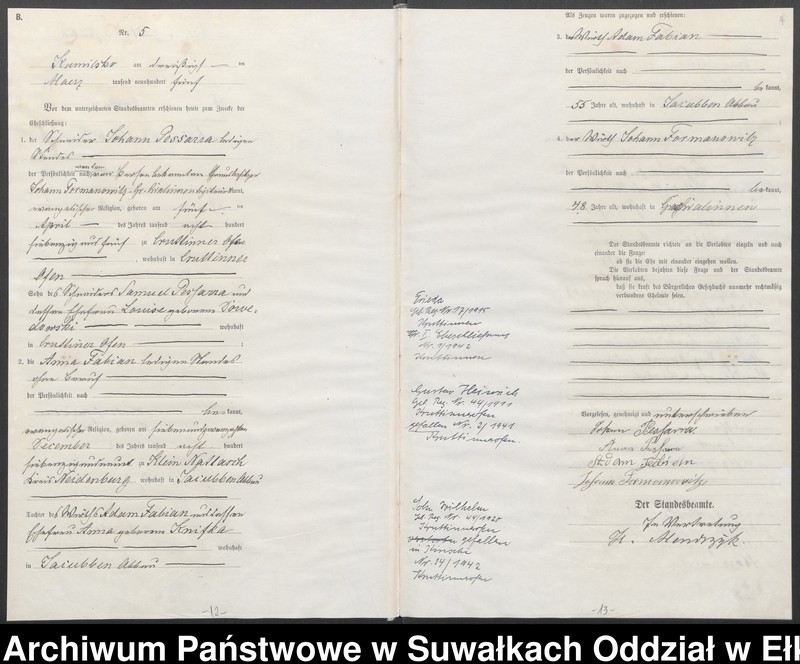 B.
Nr. 5
Kamilsko am dreißigsten
Maerz tausend neunhundert fünf
Vor dem unterzeichneten Standesbeamten erschienen heute zum Zwecke der
Eheschließung:
1. der Schneider Johann Possarra ledigen
Standes
der Persönlichkeit nach
Johann Formanowitz
evangelischer Religion, geboren am fünf
April des Jahres tausend acht hundert
siebenzig und fünf zu Cruttinner Ofen
, wohnhaft in Cruttinner
Ofen
Sohn des Schneiders Samuel Possarra und
dessen Ehefrau Louise geborene
wohnhaft
in Cruttinner Ofen
2. die Anna Fabian ledigen Standes
ohne Beruf
der Persönlichkeit nach
be kannt,
evangelischer Religion, geboren am siebenundzwanzigsten
December des Jahres tausend acht hundert
siebenzig und neun zu Klein
Kreis Neidenburg, wohnhaft in Jacubben Abbau
Tochter des Wirths Adam Fabian und dessen
Ehefrau Anna geborene Knifka
wohnhaft
in Jacubben Abbau
-12-
Als Zeugen waren zugezogen und erschienen:
3. der Wirth Adam Fabian
der Persönlichkeit nach
be kannt,
55 Jahre alt, wohnhaft in Jacubben Abbau
4. der Wirth Johann Formanowitz
der Persönlichkeit nach
be kannt,
48 Jahre alt, wohnhaft in
Der Standesbeamte richtete an die Verlobten einzeln und nach
einander die Frage:
ob sie die Ehe mit einander eingehen wollen.
Die Verlobten bejahten diese Frage und der Standesbeamte
sprach hierauf aus,
daß sie kraft des Bürgerlichen Gesetzbuchs nunmehr rechtmäßig
verbundene Eheleute seien.
Frieda
Geb. Reg. Nr. 17/1915
Kruttinnen
I. Eheschließung
Nr. 9/1942
Kruttinnen
Gustav Heinrich
Geb. Reg. Nr. 44/1911
Kruttinnerofen
gefallen Nr. 3/1941
Kruttinnerofen.
John Wilhelm
Geb. Reg. Nr. 44/1920
Kruttinnerofen
gefallen
Nr. 14/1942
Kruttinnerofen
Vorgelesen, genehmigt und unterschrieben
Johann Possarra
Anna
Adam Fabian
Johann Formanowitz
Der Standesbeamte.
In Vertretung
-13-
Archiwum Państwowe w Suwałkach Oddział w Ełk